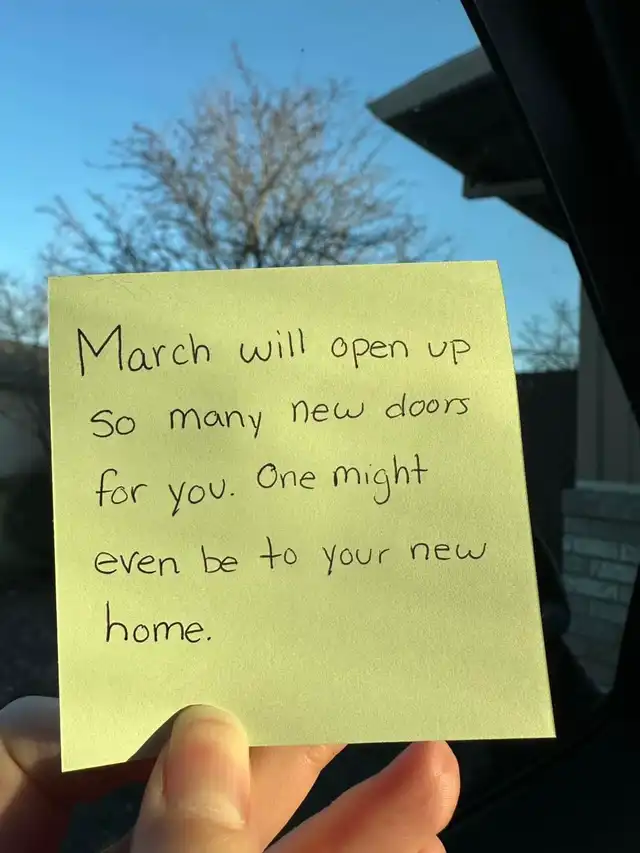 March will open up
so many new doors
for you. One might
even be to your new
home.